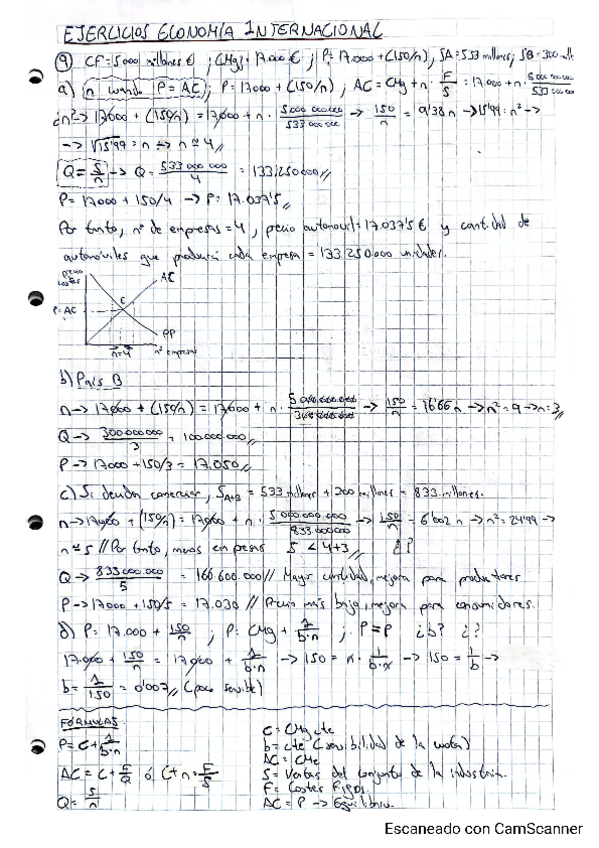 EJERCICIOS ECONOMÍA INTERNACIONAL
9) CF=5000 millones €; CMg: 17.000 €; P=17.000+(150/n), SA=533 millones; SB=300 mill
a) n cuando P=AC; P=17000+(150/n), AC=CMg+n·F/S=17.000+n·5000 000 000/533 000 000
¿n? -> 17000+(150/n)=17000+n·5000 000 000/533 000 000 -> 150/n=9'38n->15'99=n² ->
-> √15'99=n => n≈4 //
Q=S/n -> Q=533 000 000/4=133.250.000 //
P=17000+150/4 -> P=17.037'5 //
Por tanto, nº de empresas=4, precio automovil=17.037'5 € y cantidad de
automóviles que producirá cada empresa=133.250.000 unidades.
precio
costes
AC
E
P=AC
PP
n=4
nº empresas
b) País B
n-> 17000+(150/n)=17000+n·5 000.000.000/300 000 000 -> 150/n=16'66n->n²=9->n=3 //
Q-> 300.000.000/3=100.000.000 //
P-> 17000+150/3=17.050 //
c) Si deciden comerciar, SA+B=533 millones+300 millones=833 millones.
n->17000+(150/n)=17000+n·5 000.000.000/833.000000 -> 150/n=6'002n->n²=24'99->
n≈5 // Por tanto, menos empresas 5<4+3 // ¿?
Q-> 833 000.000/5=166.600.000 // Mayor cantidad, mejora para productores
P->17000+150/5=17.030 // Precio más bajo, mejora para consumidores.
d) P=17.000+150/n; P=CMg+1/b·n; P=P ¿b? ¿?
17.000+150/n=17000+1/b·n -> 150=n·1/b·n -> 150=1/b ->
b=1/150=0'007 // (poco sensible)
FÓRMULAS
P=C+1/b·n
AC=C+F/Q ó C+n·F/S
Q=S/n
C=CMg cte
b=cte (sensibilidad de la cuota)
AC=CMe
S=Ventas del conjunto de la industria.
F=Costes Fijos.
AC=P -> Equilibrio.
Escaneado con CamScanner